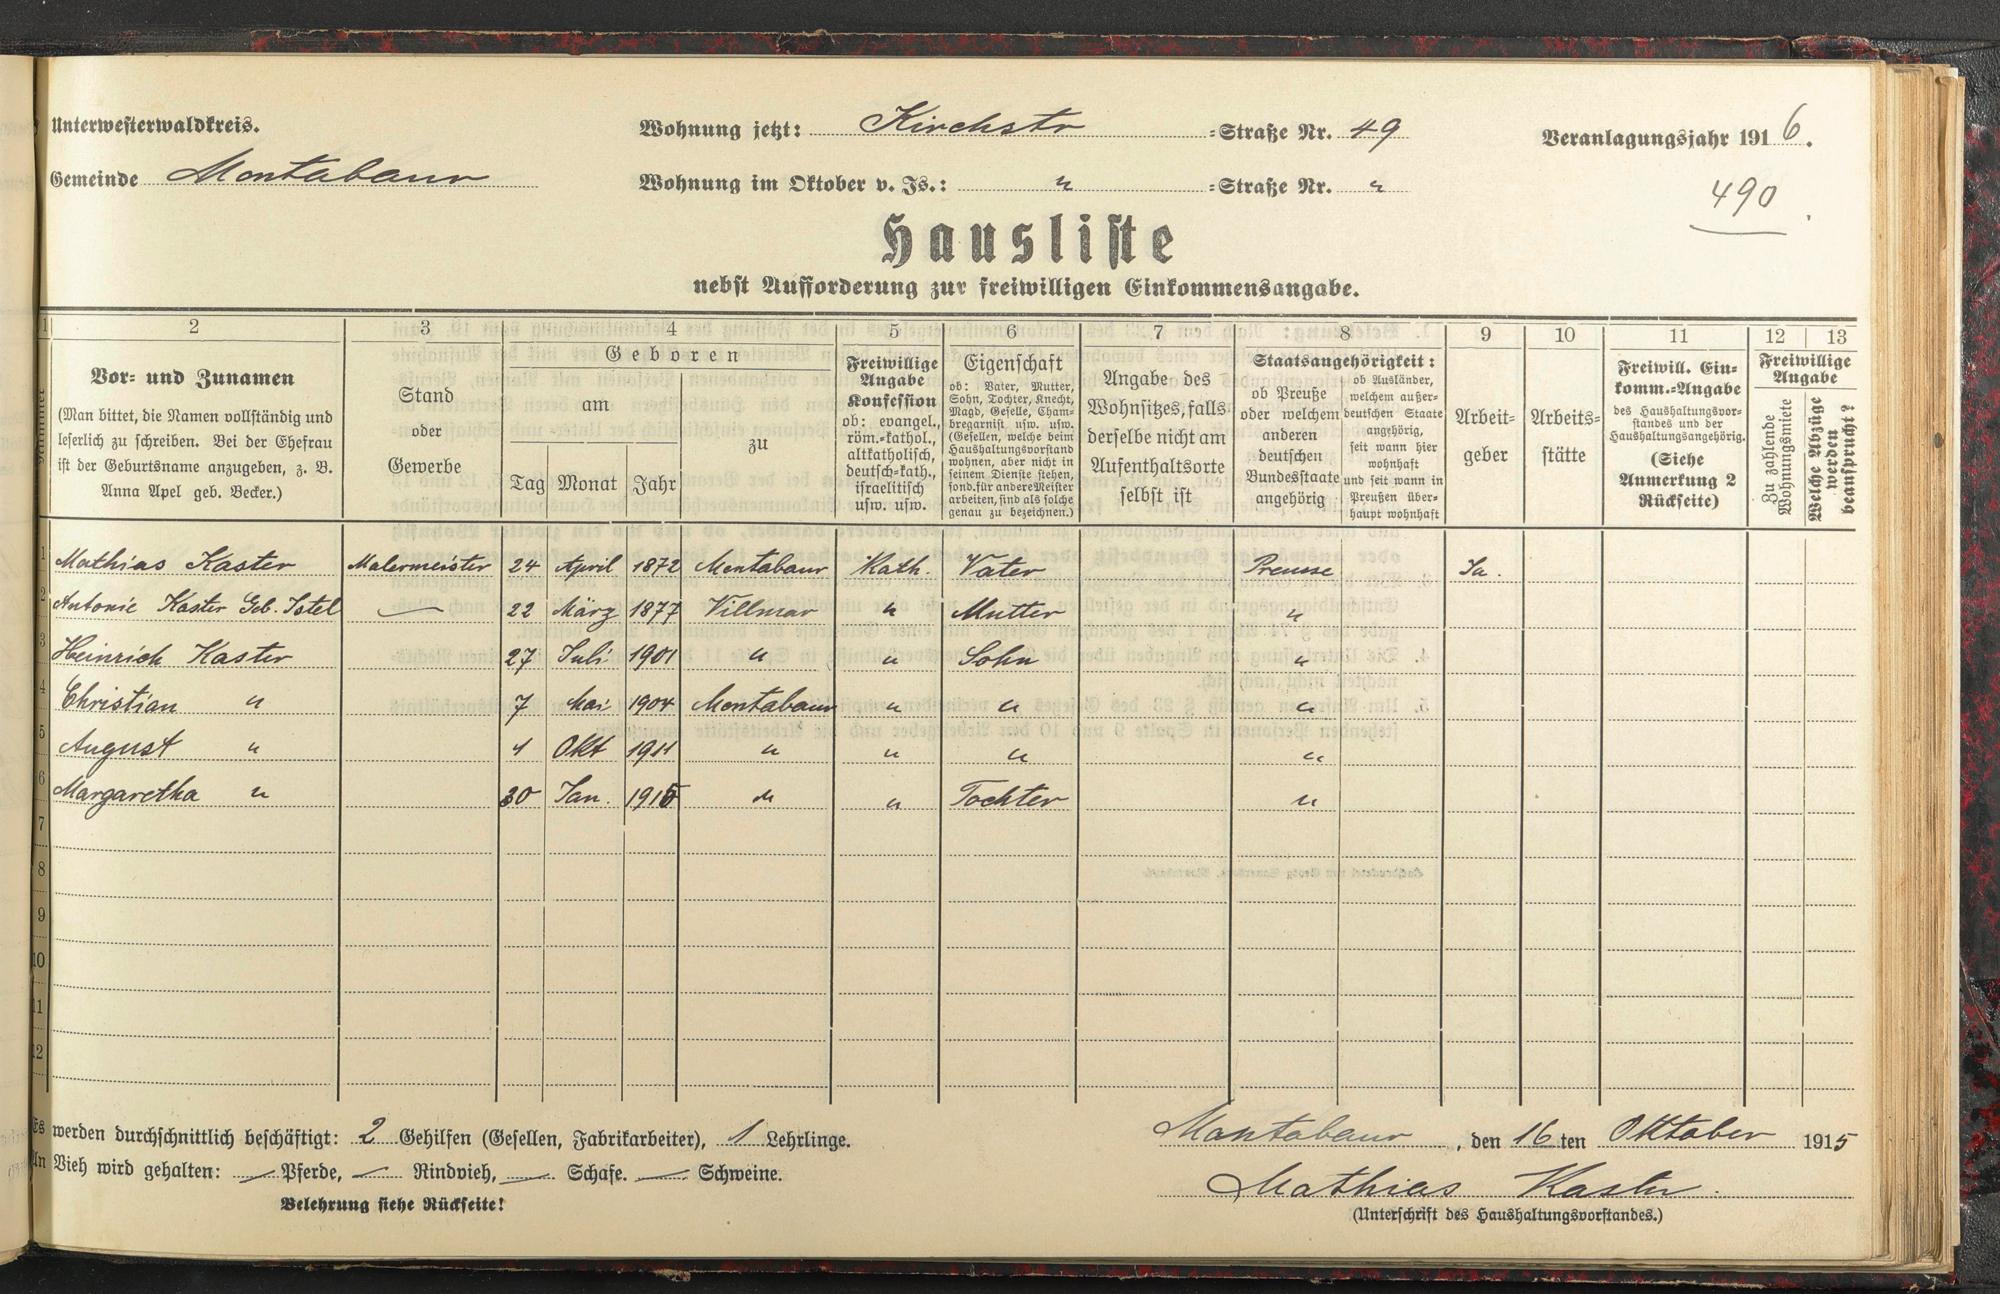 Unterwesterwaldkreis.
Gemeinde Montabaur
Wohnung jetzt: Kirchstr =Straße Nr. 49
Wohnung im Oktober v. Js.: " =Straße Nr. "
Veranlagungsjahr 1916.
490
Hausliste
nebst Aufforderung zur freiwilligen Einkommensangabe.
1 2 3 4 5 6 7 8 9 10 11 12 13
Vor- und Zunamen
(Man bittet, die Namen vollständig und
leserlich zu schreiben. Bei der Ehefrau
ist der Geburtsname anzugeben, z. B.
Anna Apel geb. Becker.)
Stand
oder
Gewerbe
Geboren
am
Tag Monat Jahr
zu
Freiwillige
Angabe
Konfession
ob: evangel.,
röm.-kathol.,
altkatholisch,
deutsch-kath.,
israelitisch
usw. usw.
Eigenschaft
ob: Vater, Mutter,
Sohn, Tochter, Knecht,
Magd, Geselle, Cham-
bregarnist usw. usw.
(Gesellen, welche beim
Haushaltungsvorstand
wohnen, aber nicht in
seinem Dienste stehen,
sond. für andere Meister
arbeiten, sind als solche
genau zu bezeichnen.)
Angabe des
Wohnsitzes, falls
derselbe nicht am
Aufenthaltsorte
selbst ist
Staatsangehörigkeit:
ob Preuße
oder welchem
anderen
deutschen
Bundesstaate
angehörig
ob Ausländer,
welchem außer-
deutschen Staate
angehörig,
seit wann hier
wohnhaft
und seit wann in
Preußen über-
haupt wohnhaft
Arbeit-
geber
Arbeits-
stätte
Freiwill. Ein-
komm.-Angabe
des Haushaltungsvor-
standes und der
Haushaltungsangehörig.
(Siehe
Anmerkung 2
Rückseite)
Freiwillige
Angabe
Zu zahlende
Wohnungsmiete
Welche Abzüge
werden
beansprucht?
1 Mathias Kaster Malermeister 24 April 1872 Montabaur Kath. Vater Preusse Ja.
2 Antonie Kaster Geb. Istel — 22 März 1877 Villmar " Mutter "
3 Heinrich Kaster 27 Juli 1901 " " Sohn "
4 Christian " 7 Mai 1904 Montabaur " " "
5 August " 1 Okt 1911 " " " "
6 Margaretha " 30 Jan. 1915 " " Tochter "
7
8
9
10
11
12
Es werden durchschnittlich beschäftigt: 2 Gehilfen (Gesellen, Fabrikarbeiter), 1 Lehrlinge.
An Vieh wird gehalten: — Pferde, — Rindvieh, — Schafe. — Schweine.
Belehrung siehe Rückseite!
Montabaur, den 16ten Oktober 1915
Mathias Kaster.
(Unterschrift des Haushaltungsvorstandes.)